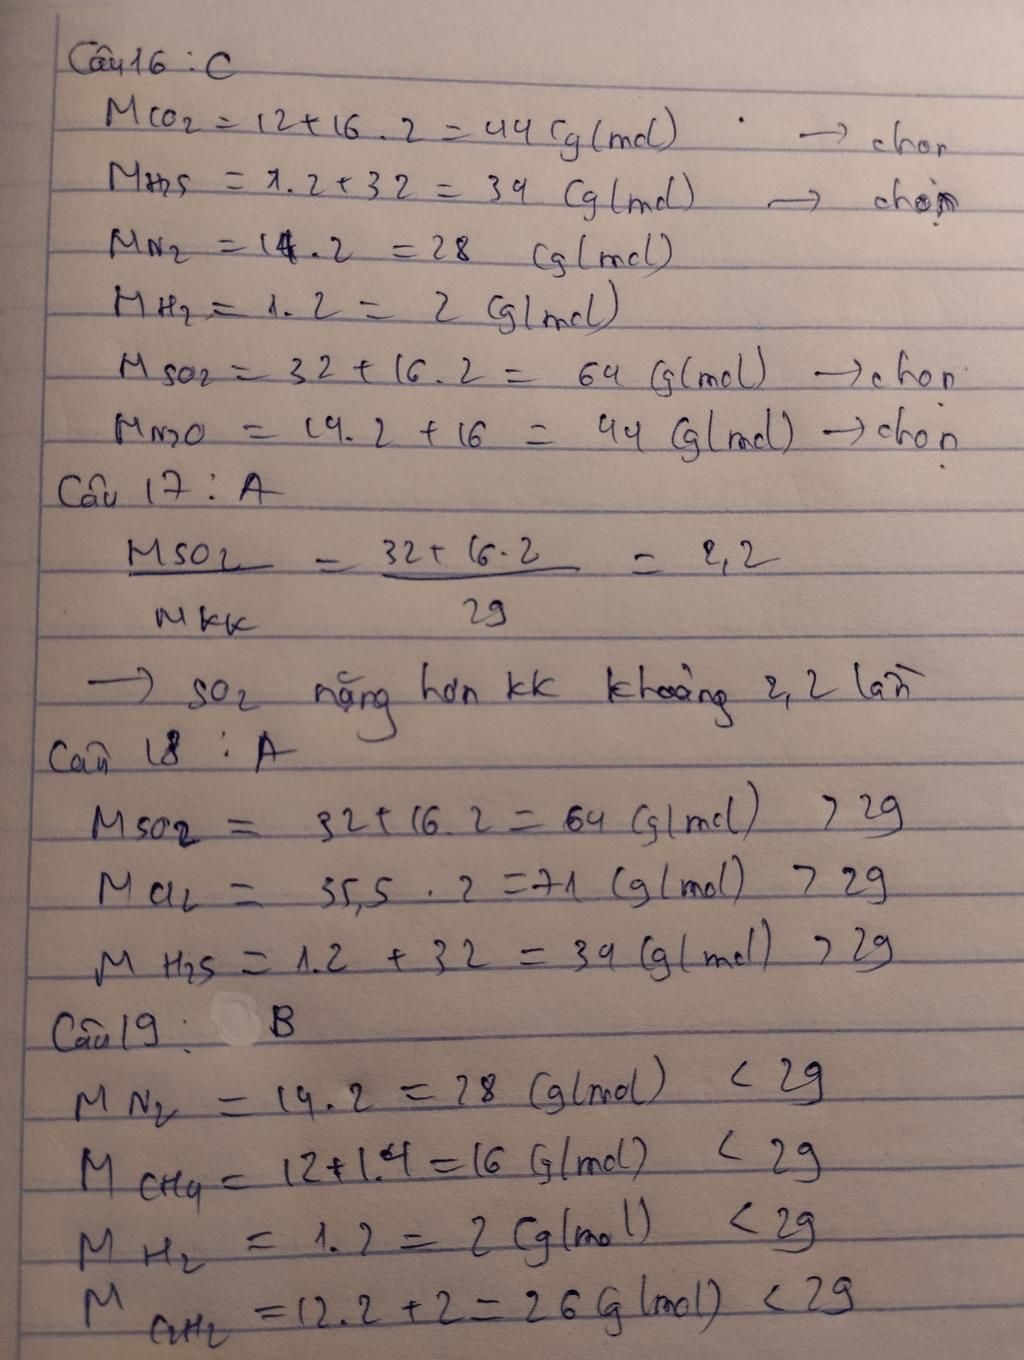 Câu 16 : C
MCO2 = 12+16.2 = 44 (g/mol) → chọn
MH2S = 1.2+32 = 34 (g/mol) → chọn
MN2 = 14.2 = 28 (g/mol)
MH2 = 1.2 = 2 (g/mol)
MSO2 = 32+16.2 = 64 (g/mol) → chọn
MN2O = 14.2+16 = 44 (g/mol) → chọn
Câu 17 : A
MSO2 / MKK = 32+16.2 / 29 = 2,2
→ SO2 nặng hơn kk khoảng 2,2 lần
Câu 18 : A
MSO2 = 32+16.2 = 64 (g/mol) > 29
MCl2 = 35,5 . 2 = 71 (g/mol) > 29
MH2S = 1.2 + 32 = 34 (g/mol) > 29
Câu 19 : B
MN2 = 14.2 = 28 (g/mol) < 29
MCH4 = 12+1.4 = 16 (g/mol) < 29
MH2 = 1.2 = 2 (g/mol) < 29
MC2H2 = 12.2 + 2 = 26 (g/mol) < 29